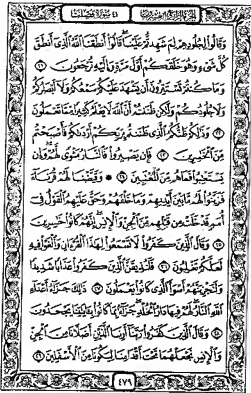 سُورَةُ فُصِّلَتْ ٤١
وَقَالُوا۟ لِجُلُودِهِمْ لِمَ شَهِدتُّمْ عَلَيْنَا ۖ قَالُوٓا۟ أَنطَقَنَا ٱللَّهُ ٱلَّذِىٓ أَنطَقَ
كُلَّ شَىْءٍ وَهُوَ خَلَقَكُمْ أَوَّلَ مَرَّةٍ وَإِلَيْهِ تُرْجَعُونَ ٢١
وَمَا كُنتُمْ تَسْتَتِرُونَ أَن يَشْهَدَ عَلَيْكُمْ سَمْعُكُمْ وَلَآ أَبْصَـٰرُكُمْ
وَلَا جُلُودُكُمْ وَلَـٰكِن ظَنَنتُمْ أَنَّ ٱللَّهَ لَا يَعْلَمُ كَثِيرًا مِّمَّا تَعْمَلُونَ
٢٢ وَذَٰلِكُمْ ظَنُّكُمُ ٱلَّذِى ظَنَنتُم بِرَبِّكُمْ أَرْدَىٰكُمْ فَأَصْبَحْتُم
مِّنَ ٱلْخَـٰسِرِينَ ٢٣ فَإِن يَصْبِرُوا۟ فَٱلنَّارُ مَثْوًى لَّهُمْ ۖ وَإِن
يَسْتَعْتِبُوا۟ فَمَا هُم مِّنَ ٱلْمُعْتَبِينَ ٢٤ ۞ وَقَيَّضْنَا لَهُمْ قُرَنَآءَ
فَزَيَّنُوا۟ لَهُم مَّا بَيْنَ أَيْدِيهِمْ وَمَا خَلْفَهُمْ وَحَقَّ عَلَيْهِمُ ٱلْقَوْلُ فِىٓ
أُمَمٍ قَدْ خَلَتْ مِن قَبْلِهِم مِّنَ ٱلْجِنِّ وَٱلْإِنسِ ۖ إِنَّهُمْ كَانُوا۟ خَـٰسِرِينَ
٢٥ وَقَالَ ٱلَّذِينَ كَفَرُوا۟ لَا تَسْمَعُوا۟ لِهَـٰذَا ٱلْقُرْءَانِ وَٱلْغَوْا۟ فِيهِ
لَعَلَّكُمْ تَغْلِبُونَ ٢٦ فَلَنُذِيقَنَّ ٱلَّذِينَ كَفَرُوا۟ عَذَابًا شَدِيدًا
وَلَنَجْزِيَنَّهُمْ أَسْوَأَ ٱلَّذِى كَانُوا۟ يَعْمَلُونَ ٢٧ ذَٰلِكَ جَزَآءُ أَعْدَآءِ
ٱللَّهِ ٱلنَّارُ ۖ لَهُمْ فِيهَا دَارُ ٱلْخُلْدِ ۖ جَزَآءًۢ بِمَا كَانُوا۟ بِـَٔايَـٰتِنَا يَجْحَدُونَ
٢٨ وَقَالَ ٱلَّذِينَ كَفَرُوا۟ رَبَّنَآ أَرِنَا ٱلَّذَيْنِ أَضَلَّانَا مِنَ ٱلْجِنِّ
وَٱلْإِنسِ نَجْعَلْهُمَا تَحْتَ أَقْدَامِنَا لِيَكُونَا مِنَ ٱلْأَسْفَلِينَ ٢٩
٤٧٩